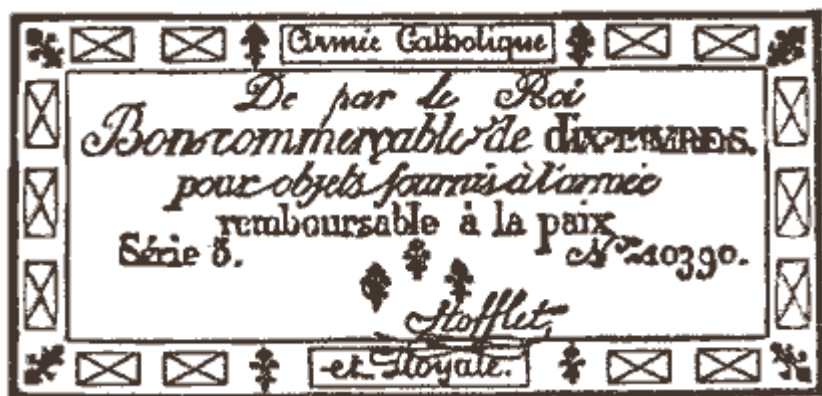 Armée Catholique
De par le Roi
Bon commerçable de dix LIVRES.
pour objets fournis à l'armée
remboursable à la paix
Série 5. N.º 10390.
Stofflet,
et Royale.